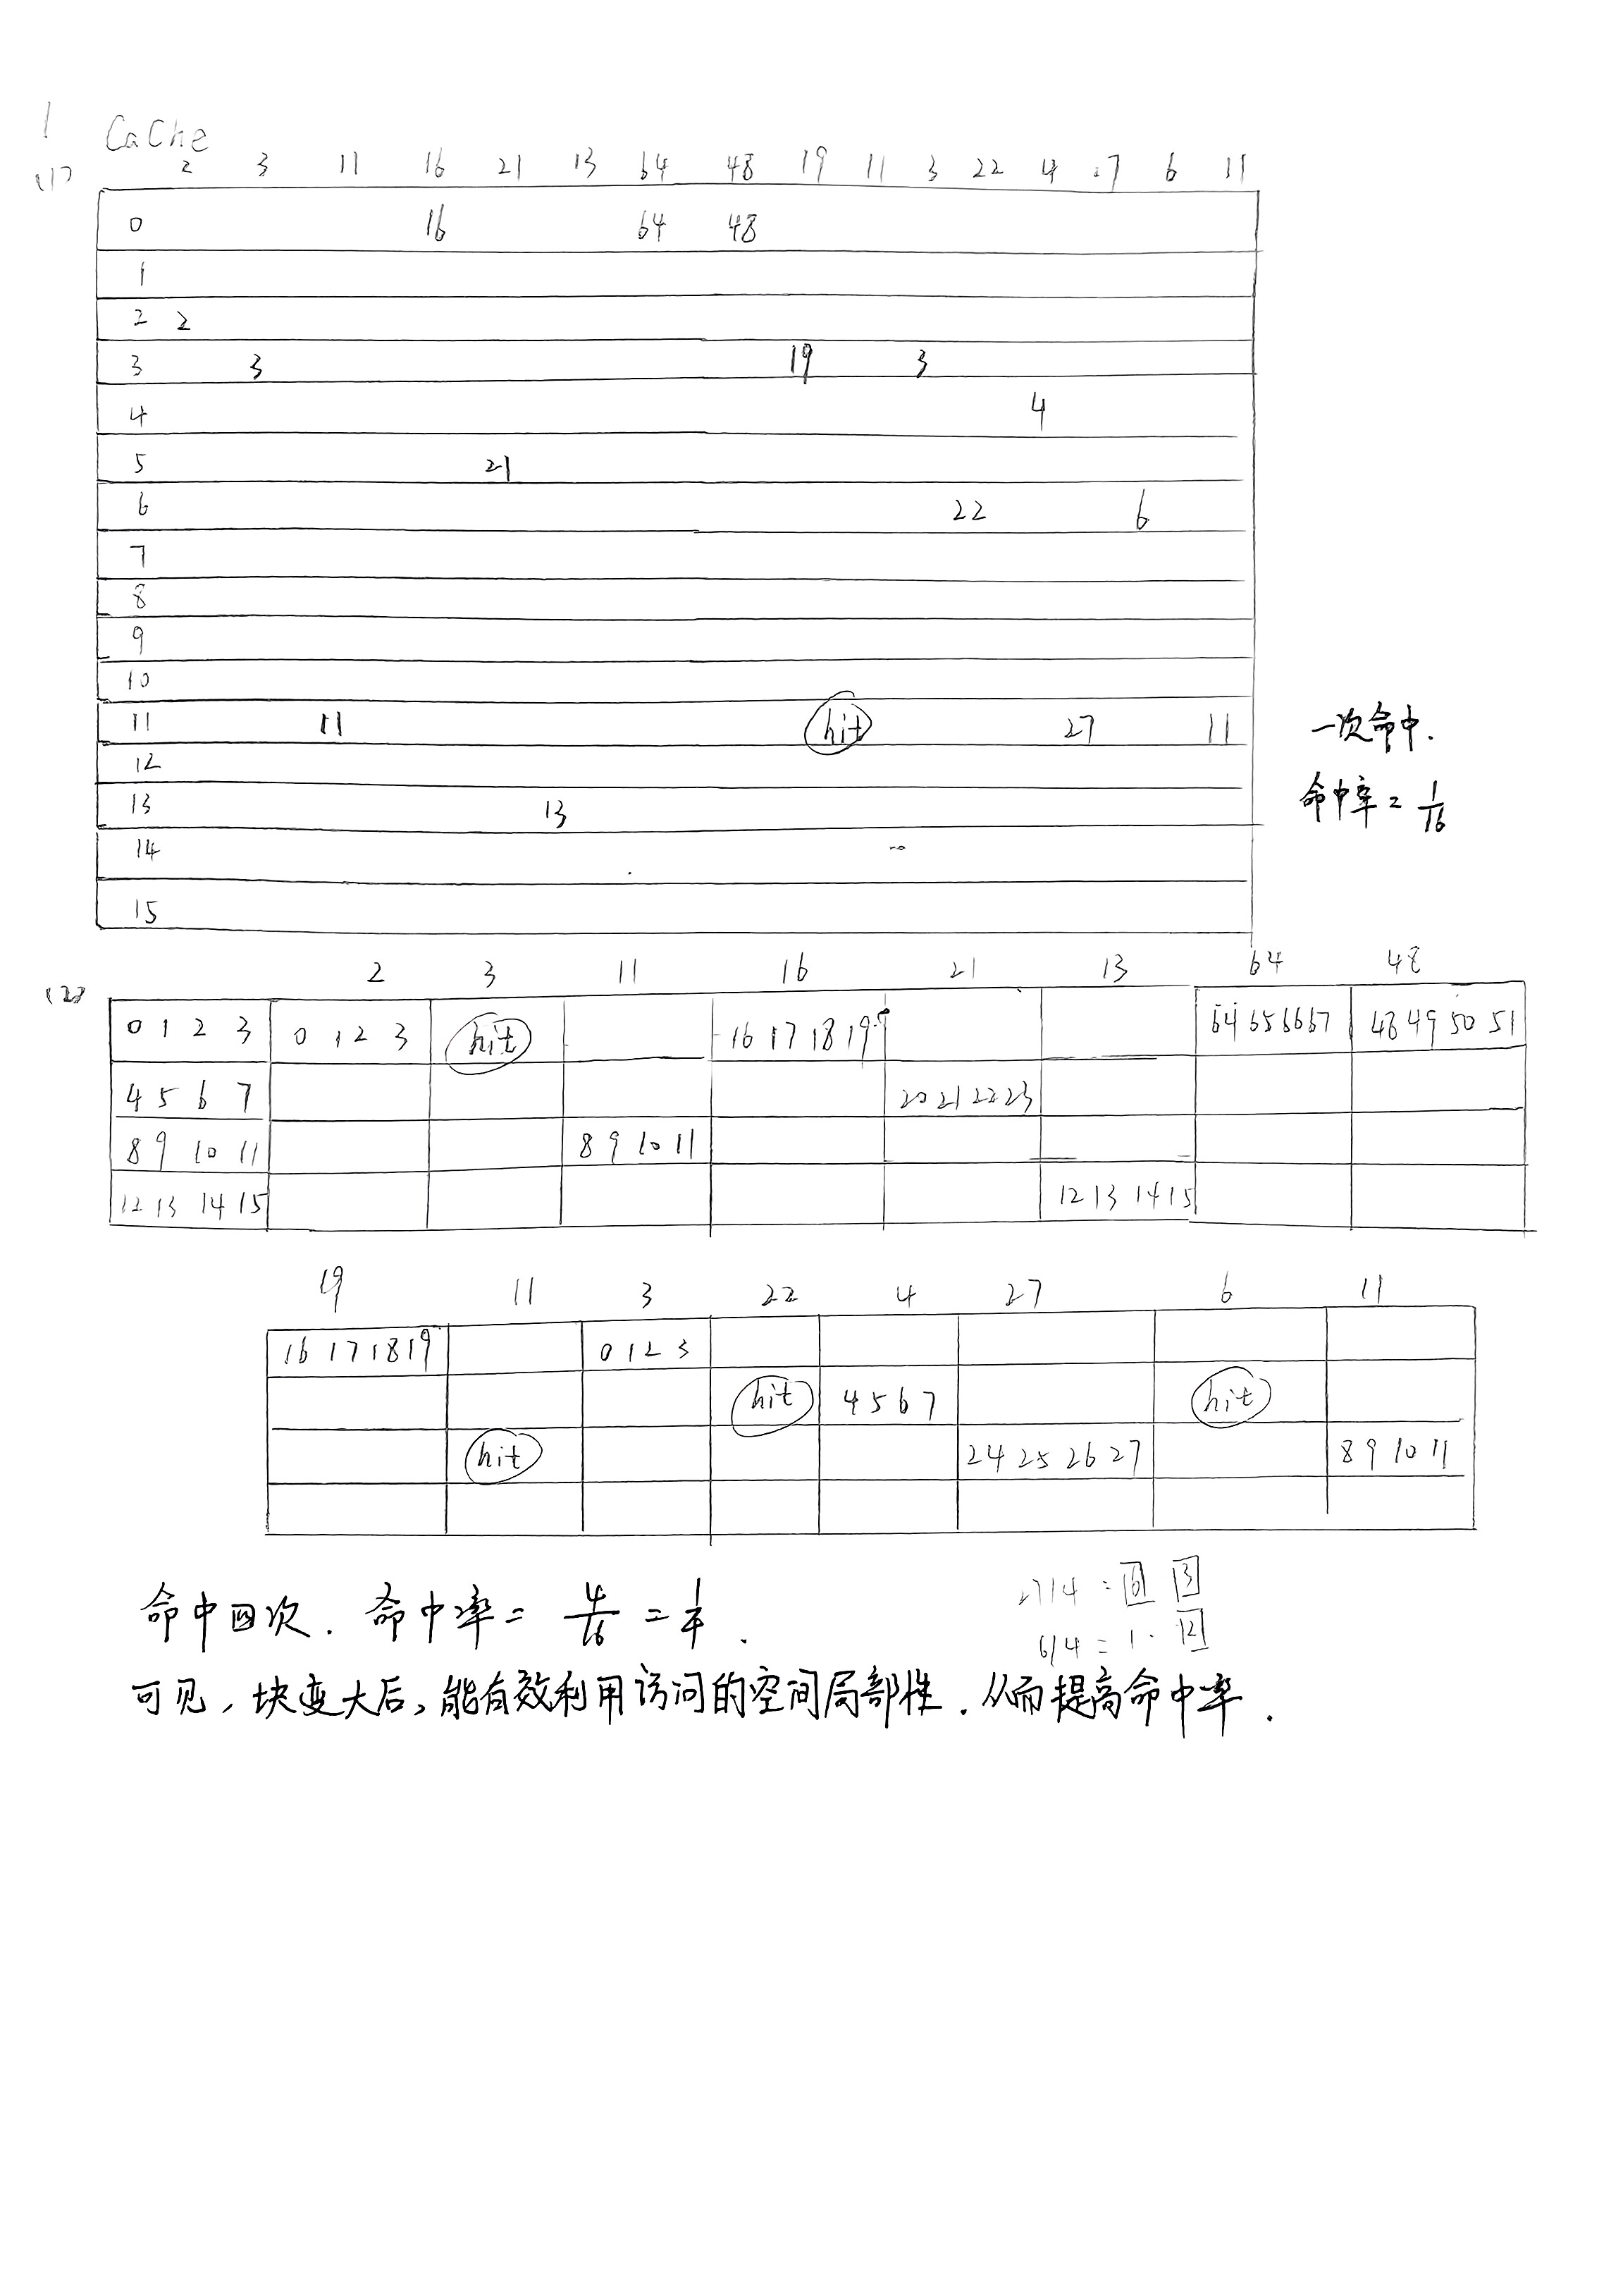 1 Cache
(1) 2 3 11 16 21 13 64 48 19 11 3 22 4 27 6 11
0 16 64 48
1
2 2
3 3 19 3
4 4
5 21
6 22 6
7
8
9
10
11 11 hit 27 11
一次命中.
12
13 13
命中率 = 1/16
14
15
(2) 2 3 11 16 21 13 64 48
0 1 2 3 0 1 2 3 hit 16 17 18 19 64 65 66 67 48 49 50 51
4 5 6 7 20 21 22 23
8 9 10 11 8 9 10 11
12 13 14 15 12 13 14 15
19 11 3 22 4 27 6 11
16 17 18 19 0 1 2 3
hit 4 5 6 7 hit
hit 24 25 26 27 8 9 10 11
27/4 = 6 3
命中四次. 命中率 = 4/16 = 1/4.
6/4 = 1. 2
可见, 块变大后, 能有效利用访问的空间局部性. 从而提高命中率.